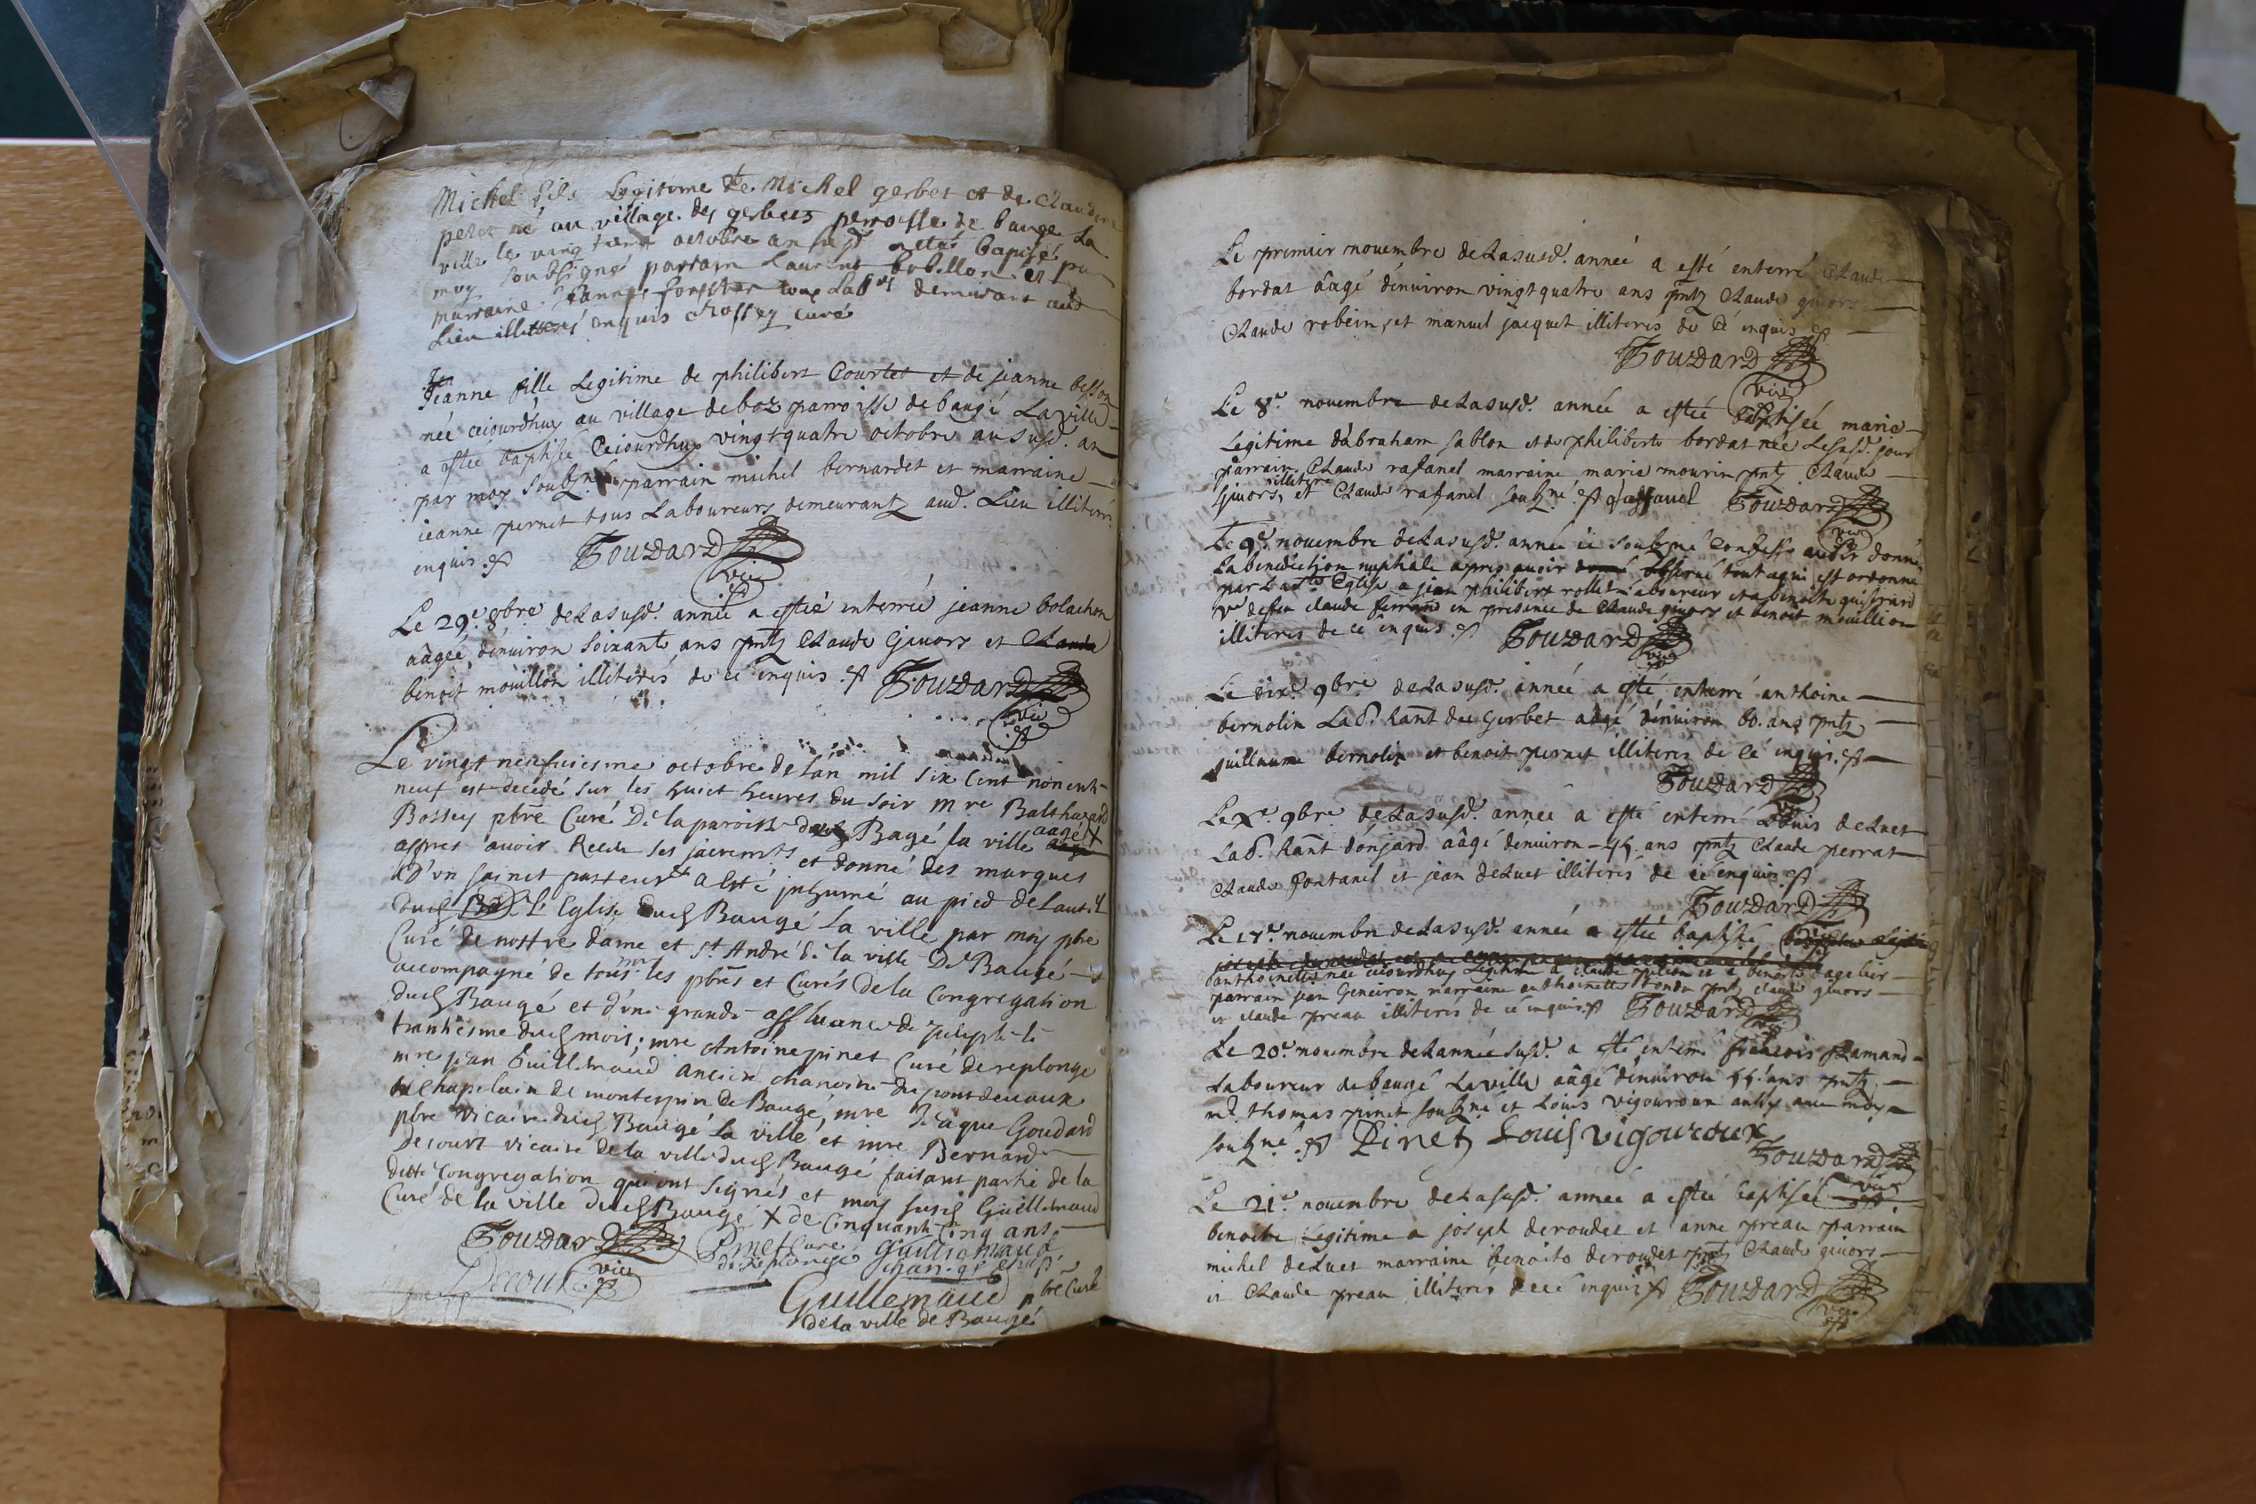 Michel fils Legitime de Michel gerbet et de Claudine
né au village des gerbets parroisse de bauge La
ville le vingt octobre an susd. a etté baptisé par
moy soubsigné parrain Laurens bobillon et pour
marraine demeurant aud.
Lieu illitteres enquis chossey curé
Jeanne fille Legitime de philibert Courtet et de jeanne besson
née ceiourdhuy au village de boz parroisse de baugé La ville
a estée baptisée Ceiourdhuy vingt quatre octobre au susd. an
par moy soubz.né parrain michel bernardet et marraine
ieanne pernet tous Laboureurs demeurantz aud. Lieu illiteré
enquis. Gouzard
vic
Le 29e 8bre de La susd. année a esteé enterrée jeanne bolachon
aâgeé d'enuiron soixante ans pntz Claude Giuors et Claude
benoit mouillon illiterés de cé enquis. Gouzard
vic
Le vingt neufuiesme octobre de Lan mil six cent nonente
neuf est decedé sur les huict heures du soir mre Balthazard
Bossey pbre Curé De la paroisse dud. Bagé la ville aagé X
appres auoir Receu ses sacremts et donné des marques
D'vn sainct pasteur a esté inhumé au pied de Lautel
dud. de L'Eglise dud Baugé la ville par moy pbre
Curé de nostre dame et st. André de la ville De Baugé
accompagné de tous mrs les pbres et Curés de la Congregation
dud Baugé et d'vne grande affluance de peuple le
trantiesme dud mois; mre Antoine pinet Curé de replonge
mre jean Guillemaud ancien chanoine du pontdeuaux
Chapelain de montespin de Baugé, mre Jaque Goudard
pbre vicaire dud Baugé la ville et mre Bernard
Decourt vicaire de la ville dud Baugé faisant partie de la
ditte Congregation qui ont signés et moy susd Guillemaud
Curé de la ville dud Baugé X de Cinquante cinq ans
Gouzard Pinet Curé Guillemaud
vic de Replonge
Decourt
Guillemaud pbre Curé
de la ville de Baugé
Le premier nouembre de La susd. anneé a esté enterré Claude
bordat âagé d'enuiron vingt quatre ans pntz Claude giuors
Claude robein, et manuel jacquet illiteris de cé enquis
Gouzard
vic
Le 8e nouembre de La susd. année a esteé baptisée marie
Legitime d'abraham sablon et de philiberte bordat née Le susd. jour
parrain Claude rafanel marraine marie mourin pntz Claude
Giuors, illitere et Claude rafanel soubz.né Raffanel Gouzard
vic
Le 9e nouembre de La susd. année ie soubz.né Confesse auoir donné
La benediction nuptiale apres auoir obserué tout a qui est ordonné
par La ste Eglise a jean philibert rollet Laboureur et a benoite
vve defeu claude ferrand en presence de Claude giuors et benoit mouillion
illiteris de cé enquis. Gouzard
vic
Le dixe 9bre de La susd. année a esté enterré anthoine
bernolin Lab. hant des Gerbet aagé d'enuiron 60. ans pntz
guillaume bernolin et benoit pernet illiteris de cé enquis.
Gouzard
Le Xe 9bre de La susd. année a esté enterré Louis deluet
Lab. hant donjard aâgé denuiron 45 ans pntz Claude perrat
Claude fontanel et jean deluet illiterés de cé enquis
Gouzard
Le 17e nouembre de La susd. année a esteé baptisé
anthoinette née ceiourdhuy Legitime a claude et a benoite
parrain jean Geneuron marraine anthoinette pntz claude giuors
et claude preau illiterés de cé enquis Gouzard
Le 20e nouembre de Lannée susd. a esté enterré francois
Laboureur de baugé La ville aâgé d'enuiron 55 ans pntz
mr. thomas pinet soubz.né et Louis vigouroux aussy auec moy
soubz.né Pinet Louis vigouroux
Gouzard
vic
Le 21e nouembre de La susd. année a esteé baptiseé
benoite Legitime a joseph deroudet et anne preau parrain
michel deluet marraine benoite deroudet pntz Claude giuors
et Claude preau illiterés de cé enquis Gouzard
vic